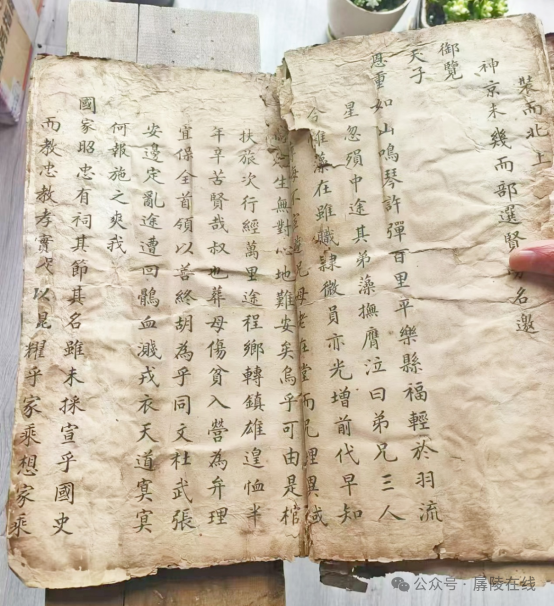 裝而北上
神京未幾而部選賢名邀
御覽
天子
恩重如山鳴琴許彈百里平樂縣福輕於羽流
星忽殞中途其弟藻撫膺泣曰弟兄三人
今雖藻在雖職隸微員亦光增前代早知
兄母老在堂而兄埋異域
生無對心地難安矣烏乎可由是棺
扶旅次行經萬里途程鄉轉鎮雄遑恤半
年辛苦賢哉叔也葬母傷貧入營為弁理
宜保全首領以善終胡為乎同文杜武張
安邊定亂途遭回鶻血濺戎衣天道寞寞
何報施之爽我
國家昭忠有祠其節其名雖未採宣乎國史
而教忠教孝實足以昆耀乎家乘想家乘
公众号·孱陵在线